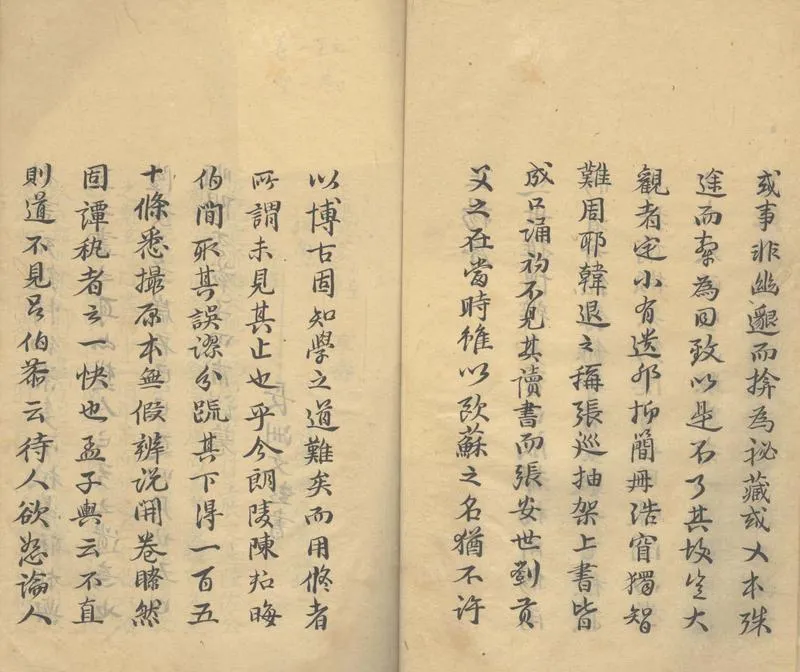 或事非幽邈而揜為祕藏或文本殊
途而牽為同致以是不了其故豈大
觀者定小有遺邪抑簡冊浩窅獨智
難周耶韓退之稱張巡抽架上書皆
成口誦初不見其讀書而張安世劉貢
父之在當時雖以歐蘇之名猶不許
以博古固知學之道難矣而用脩者
所謂未見其止也乎今朗陵陳君晦
伯間取其誤謬分疏其下得一百五
十條悉撮原本無假辨說開卷瞭然
固譚埶者之一快也孟子輿云不直
則道不見呂伯恭云待人欲恕論人